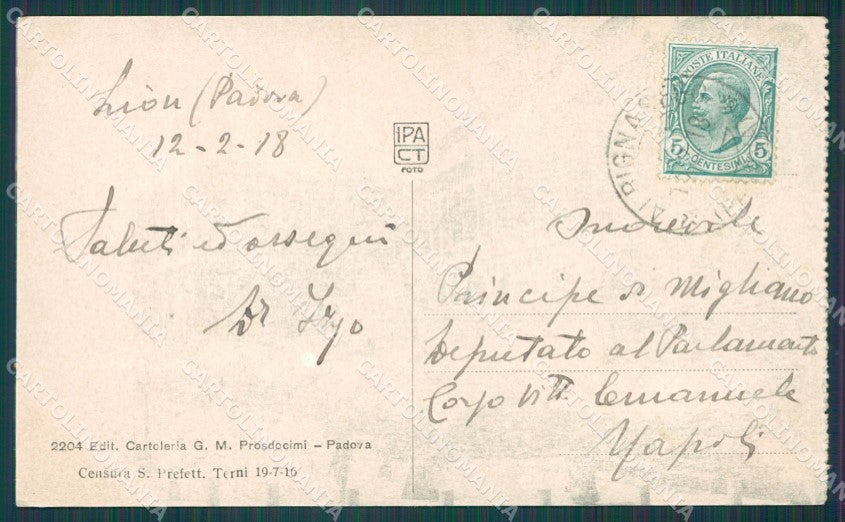 Lion (Padova)
12-2-18
Saluti ed ossequi
Dr Izzo
2204 Edit. Cartoleria G. M. Prosdocimi – Padova
Censura S. Prefett. Terni 19-7-16
IPA
CT
FOTO
POSTE ITALIANE
5 CENTESIMI 5
ALBIGNAS
Principe di Migliano
Deputato al Parlamento
Corso Vitt. Emanuele
Napoli
CARTOLINOMANIA